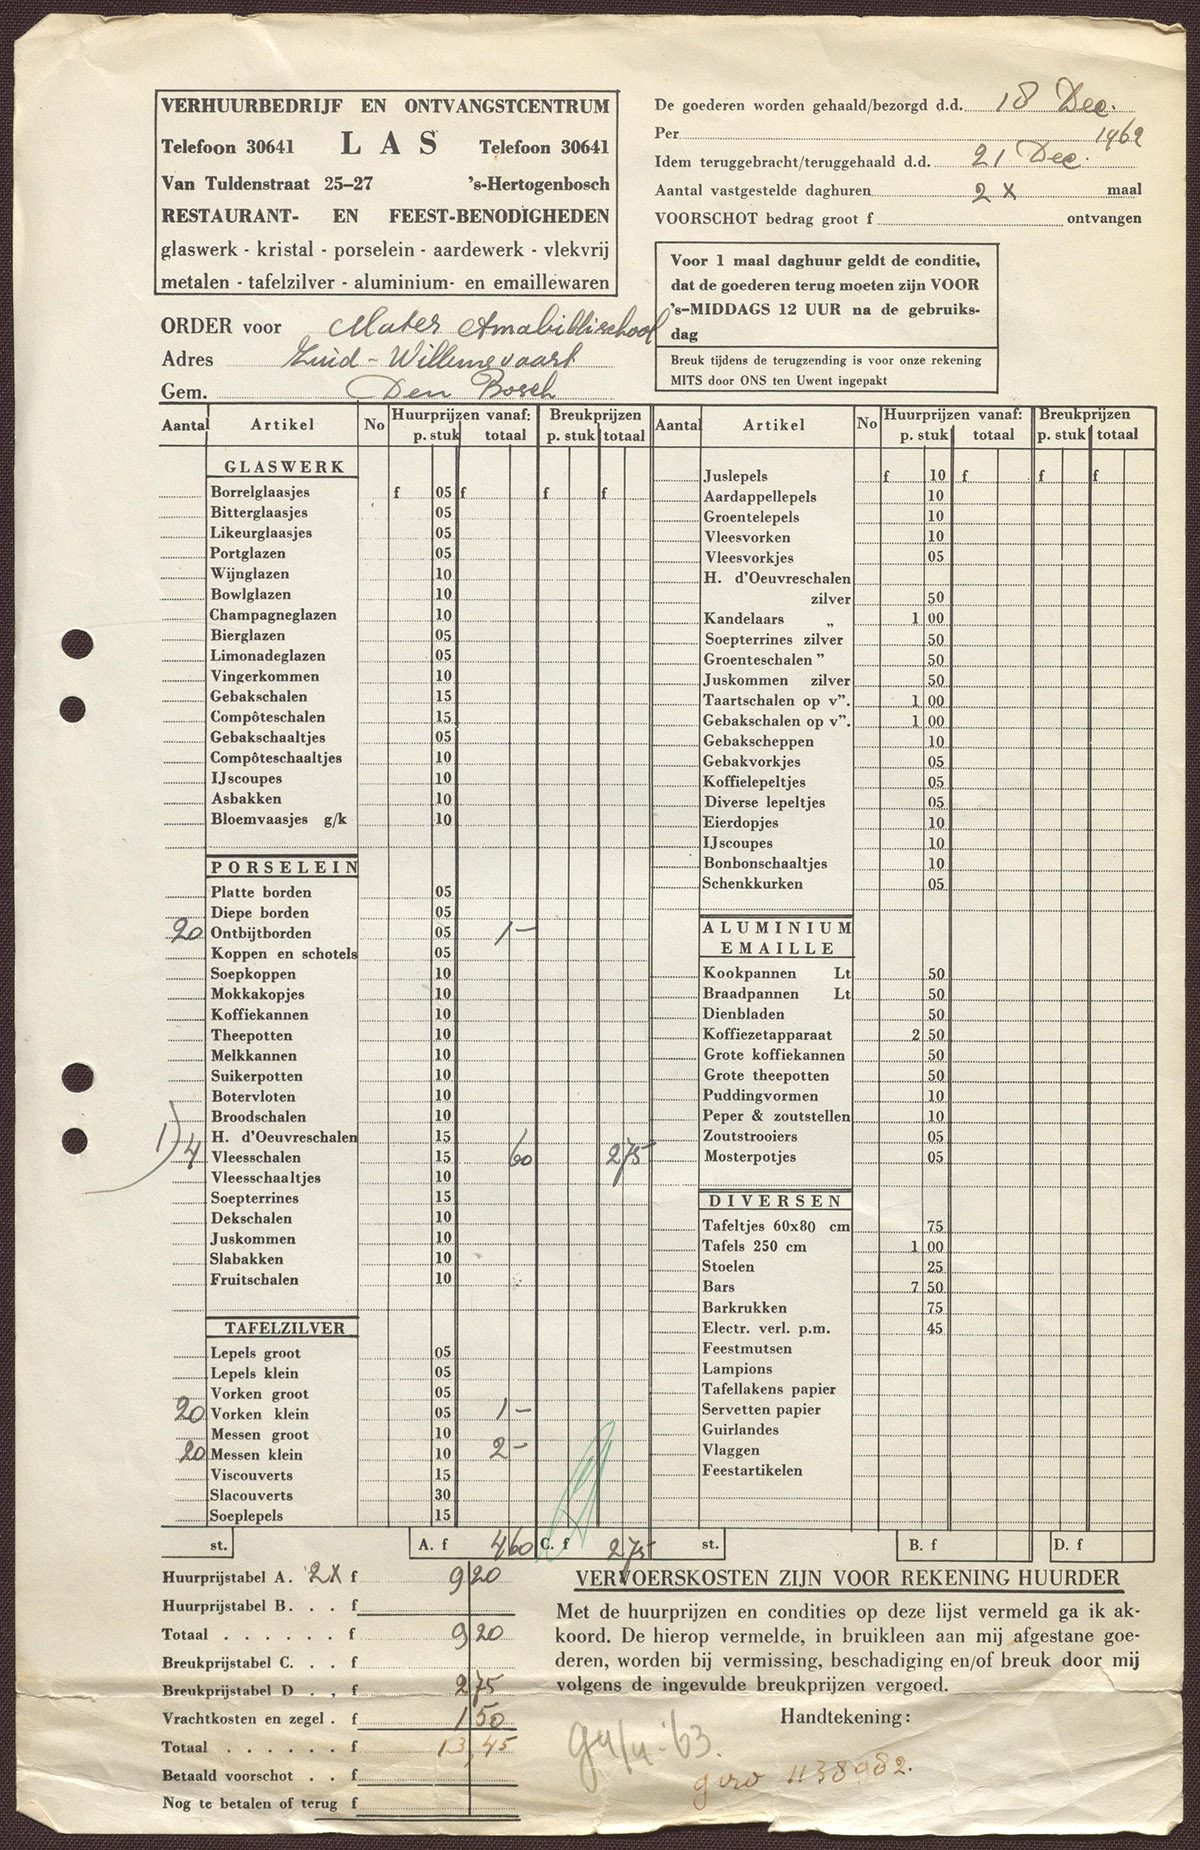 VERHUURBEDRIJF EN ONTVANGSTCENTRUM
Telefoon 30641 LAS Telefoon 30641
Van Tuldenstraat 25–27 's-Hertogenbosch
RESTAURANT- EN FEEST-BENODIGHEDEN
glaswerk - kristal - porselein - aardewerk - vlekvrij
metalen - tafelzilver - aluminium- en emaillewaren
De goederen worden gehaald/bezorgd d.d. 18 Dec.
Per 1962
Idem teruggebracht/teruggehaald d.d. 21 Dec.
Aantal vastgestelde daghuren 2 x maal
VOORSCHOT bedrag groot f ontvangen
Voor 1 maal daghuur geldt de conditie,
dat de goederen terug moeten zijn VOOR
's–MIDDAGS 12 UUR na de gebruiks-
dag
Breuk tijdens de terugzending is voor onze rekening
MITS door ONS ten Uwent ingepakt
ORDER voor Mater Amabilisschool
Adres Zuid-Willemsvaart
Gem. Den Bosch
Aantal Artikel No Huurprijzen vanaf: p. stuk totaal Breukprijzen p. stuk totaal
GLASWERK
Borrelglaasjes f 05 f f f
Bitterglaasjes 05
Likeurglaasjes 05
Portglazen 05
Wijnglazen 10
Bowlglazen 10
Champagneglazen 10
Bierglazen 05
Limonadeglazen 05
Vingerkommen 10
Gebakschalen 15
Compôteschalen 15
Gebakschaaltjes 05
Compôteschaaltjes 10
IJscoupes 10
Asbakken 10
Bloemvaasjes g/k 10
PORSELEIN
Platte borden 05
Diepe borden 05
20 Ontbijtborden 05 1 –
Koppen en schotels 05
Soepkoppen 10
Mokkakopjes 10
Koffiekannen 10
Theepotten 10
Melkkannen 10
Suikerpotten 10
Botervloten 10
Broodschalen 10
H. d'Oeuvreschalen 15
1) 4 Vleesschalen 15 60 2 75
Vleesschaaltjes 10
Soepterrines 15
Dekschalen 10
Juskommen 10
Slabakken 10
Fruitschalen 10
TAFELZILVER
Lepels groot 05
Lepels klein 05
Vorken groot 05
20 Vorken klein 05 1 –
Messen groot 10
20 Messen klein 10 2 –
Viscouverts 15
Slacouverts 30
Soeplepels 15
st. A. f 4 60 C. f 2 75
Aantal Artikel No Huurprijzen vanaf: p. stuk totaal Breukprijzen p. stuk totaal
Juslepels f 10 f f f
Aardappellepels 10
Groentelepels 10
Vleesvorken 10
Vleesvorkjes 05
H. d'Oeuvreschalen
zilver 50
Kandelaars „ 1 00
Soepterrines zilver 50
Groenteschalen " 50
Juskommen zilver 50
Taartschalen op v". 1 00
Gebakschalen op v". 1 00
Gebakscheppen 10
Gebakvorkjes 05
Koffielepeltjes 05
Diverse lepeltjes 05
Eierdopjes 10
IJscoupes 10
Bonbonschaaltjes 10
Schenkkurken 05
ALUMINIUM
EMAILLE
Kookpannen Lt 50
Braadpannen Lt 50
Dienbladen 50
Koffiezetapparaat 2 50
Grote koffiekannen 50
Grote theepotten 50
Puddingvormen 10
Peper & zoutstellen 10
Zoutstrooiers 05
Mosterpotjes 05
DIVERSEN
Tafeltjes 60x80 cm 75
Tafels 250 cm 1 00
Stoelen 25
Bars 7 50
Barkrukken 75
Electr. verl. p.m. 45
Feestmutsen
Lampions
Tafellakens papier
Servetten papier
Guirlandes
Vlaggen
Feestartikelen
st. B. f D. f
Huurprijstabel A. 2x f 9 20
Huurprijstabel B. . . f
Totaal . . . . . . f 9 20
Breukprijstabel C. . . f
Breukprijstabel D . . , f 2 75
Vrachtkosten en zegel . f 1 50
Totaal . . . . . . f 13,45
Betaald voorschot . . f
Nog te betalen of terug f
VERVOERSKOSTEN ZIJN VOOR REKENING HUURDER
Met de huurprijzen en condities op deze lijst vermeld ga ik ak-
koord. De hierop vermelde, in bruikleen aan mij afgestane goe-
deren, worden bij vermissing, beschadiging en/of breuk door mij
volgens de ingevulde breukprijzen vergoed.
Handtekening:
'63.
giro 1138982.